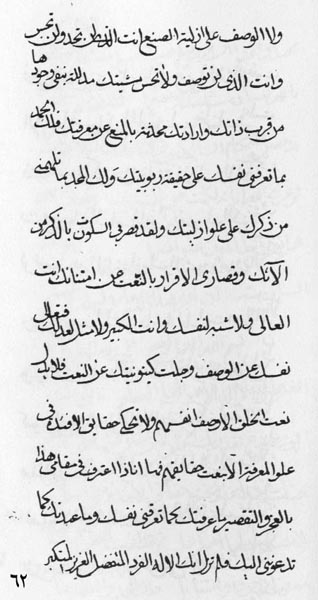 ولا الوصف على ازلية الصنع انت الذي لن تحد ولن تحس
وانت الذي لن توصف ولا تحس مشيتك مدلة بنفي وجودها
من قرب ذاتك وارادتك محدثة بالمنع عن معرفتك فلك الحمد
بما تعرفني نفسك على حقيقة ربوبيتك ولك الحمد بما تلهمني
من ذكرك على علو ازليتك ولقد قصر بي السكوت بالذكر من
الآئك وقصارى الاقرار بالنعت عن امتنانك انت
العالي ولا شبه لنفسك وانت الكبير ولا مثل لعدلك فتعال
نفسك عن الوصف وجلت كينونيتك عن النعت فلا بدل
نعت الخلق الا وصف انفسهم ولا تحكي حقايق الافئدة في
علو المعرفة الا نعت حقايقهم فها انا ذا اعترف في مقامي هذا
بالعجز والتقصير ما عرفتك كما تعرفني نفسك وما عبدتك كما
تدعوني اليك فلم تزل انك الاله الفرد المتفضل العزيز المتكبر
٦٢